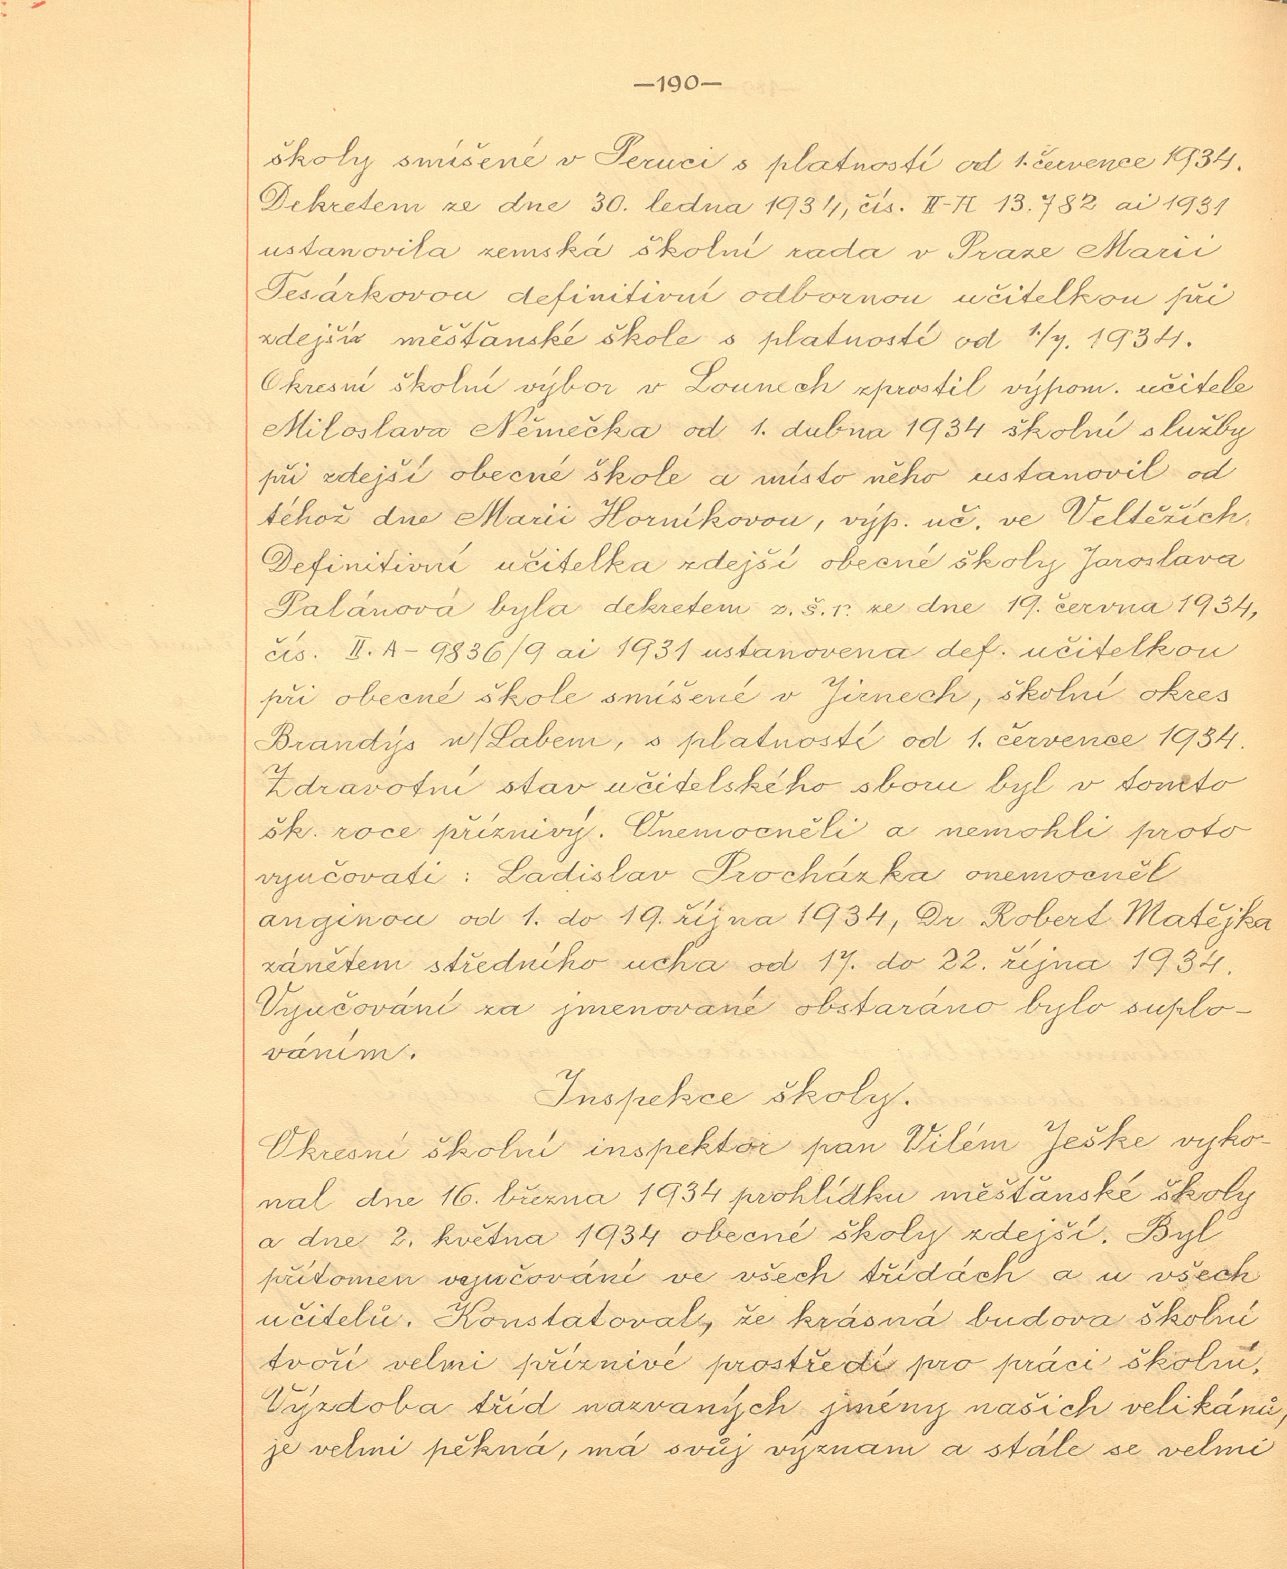 —190—
školy smíšené v Peruci s platností od 1. července 1934.
Dekretem ze dne 30. ledna 1934, čís. II-A 13.782 ai 1931
ustanovila zemská školní rada v Praze Marii
Tesárkovou definitivní odbornou učitelkou při
zdejší měšťanské škole s platností od 1./7. 1934.
Okresní školní výbor v Lounech zprostil výpom. učitele
Miloslava Němečka od 1. dubna 1934 školní služby
při zdejší obecné škole a místo něho ustanovil od
téhož dne Marii Horníkovou, výp. uč. ve Veltěžích.
Definitivní učitelka zdejší obecné školy Jaroslava
Palánová byla dekretem z. š. r. ze dne 19. června 1934,
čís. II. A - 9836/9 ai 1931 ustanovena def. učitelkou
při obecné škole smíšené v Jirnech, školní okres
Brandýs n/Labem, s platností od 1. července 1934.
Zdravotní stav učitelského sboru byl v tomto
šk. roce příznivý. Onemocněli a nemohli proto
vyučovati : Ladislav Procházka onemocněl
anginou od 1. do 19. října 1934, Dr Robert Matějka
zánětem středního ucha od 17. do 22. října 1934.
Vyučování za jmenované obstaráno bylo suplo-
váním.
Inspekce školy.
Okresní školní inspektor pan Vilém Ješke vyko-
nal dne 16. března 1934 prohlídku měšťanské školy
a dne 2. května 1934 obecné školy zdejší. Byl
přítomen vyučování ve všech třídách a u všech
učitelů. Konstatoval, že krásná budova školní
tvoří velmi příznivé prostředí pro práci školní.
Výzdoba tříd nazvaných jmény našich velikánů,
je velmi pěkná, má svůj význam a stále se velmi